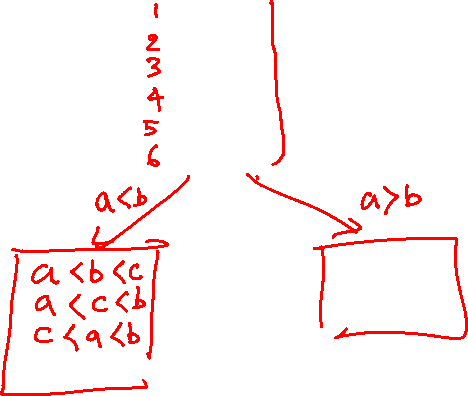 1
2
3
4
5
6
a<b
a>b
a<b<c
a<c<b
c<a<b